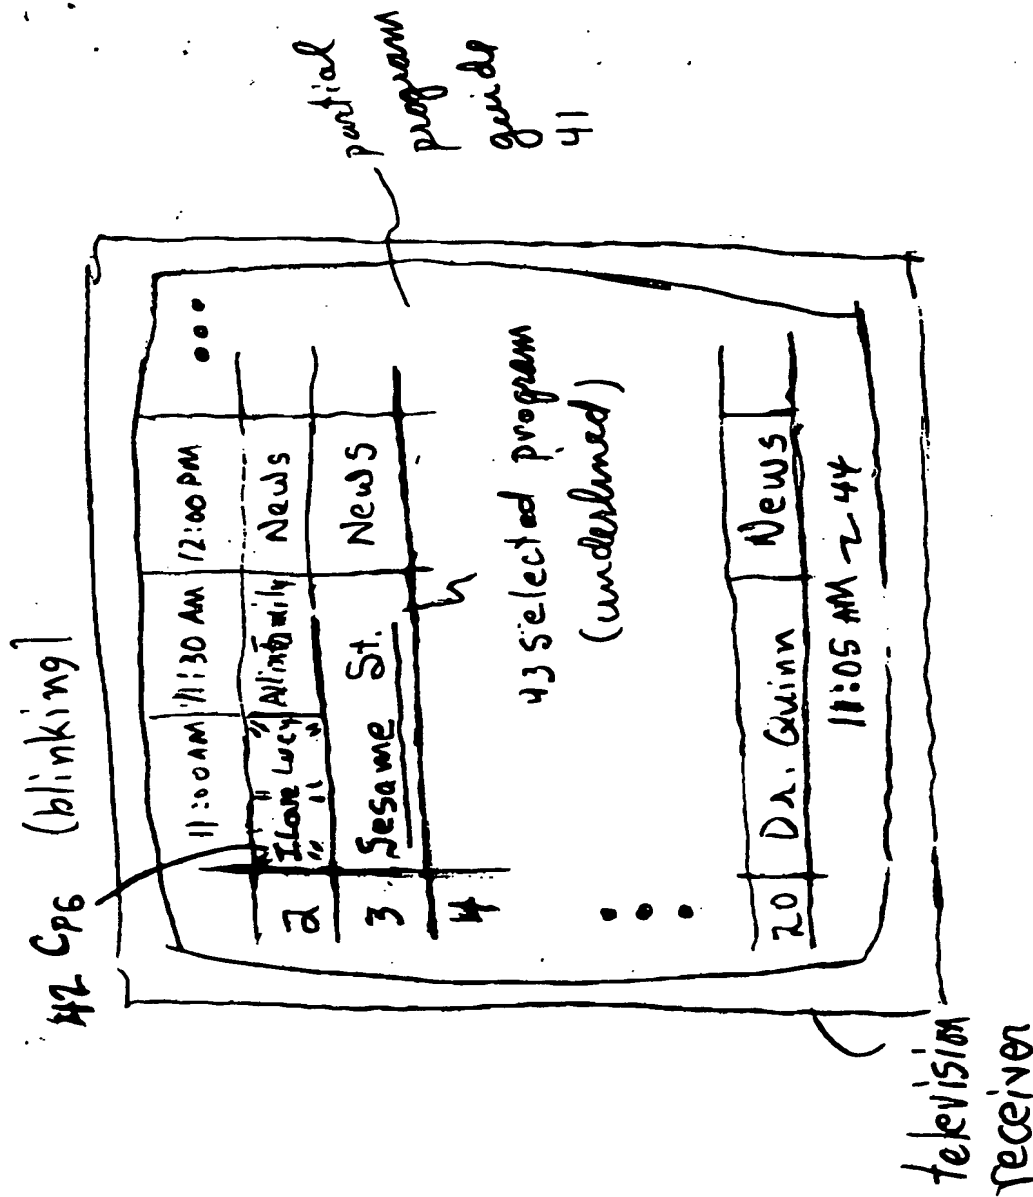 42 CPG (blinking)
partial
program
guide
41
11:00 AM 11:30 AM 12:00 PM •••
2 "I Love Lucy" All in Family News
" "
3 Sesame St. News
4
43 selected program
(underlined)
20 Dr. Quinn News
11:05 AM 44
television
receiver